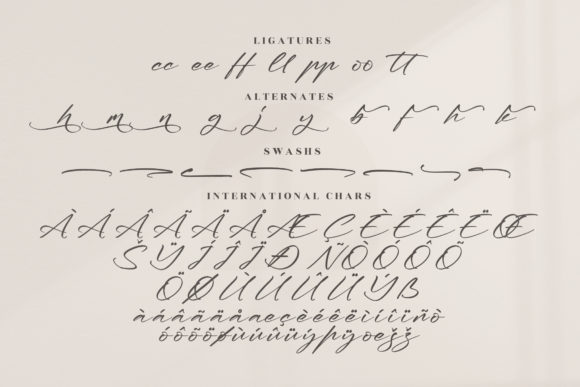 LIGATURES
cc ee ff ll pp oo tt
ALTERNATES
h m n g j y b f h k
SWASHS
INTERNATIONAL CHARS
À Á Â Ã Ä Å Æ Ç È É Ê Ë Œ
Š Ÿ Í Î Ï Ð Ñ Ò Ó Ô Õ
Ö Ø Ù Ú Û Ü Ý ß
àáâãäåæçèéêëìíîïñò
óôõöøùúûüýþÿœšž